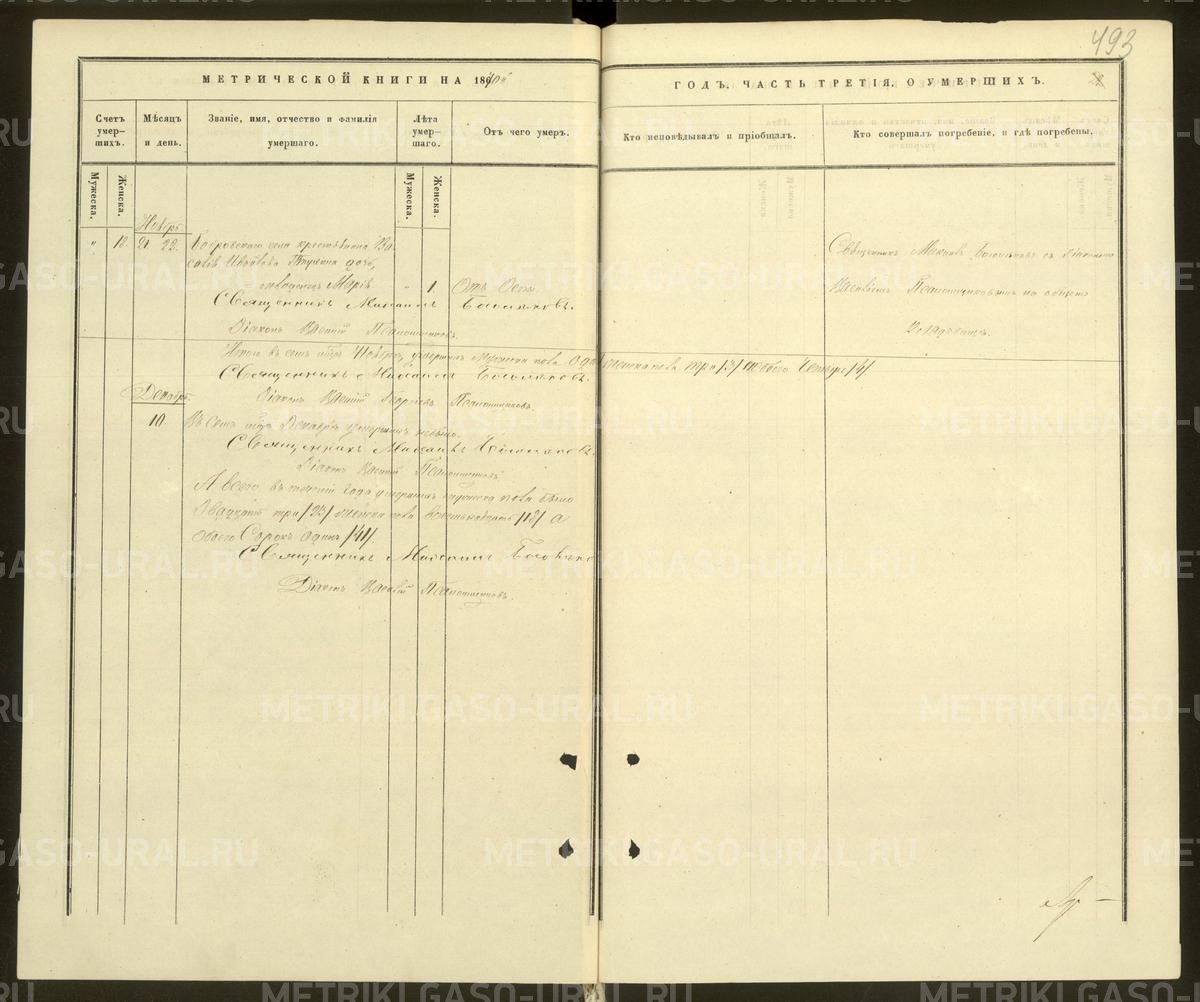 493
МЕТРИЧЕСКОЙ КНИГИ НА 1870й
ГОДЪ, ЧАСТЬ ТРЕТІЯ, О УМЕРШИХЪ.
Счетъ умер-шихъ.
Мѣсяцъ и день.
Званіе, имя, отчество и фамилія умершаго.
Лѣта умер-шаго.
Отъ чего умеръ.
Кто исповѣдывалъ и пріобщалъ.
Кто совершалъ погребеніе, и гдѣ погребены.
Мужеска.
Женска.
Мужеска.
Женска.
Ноябрь
" 18. 21 22. Бобровскаго села крестьянина Ва-
силія Иванова дочь,
младенецъ Марія " 1 Отъ Оспы
Священникъ Михаилъ
Діаконъ Василій
Священникъ Михаилъ съ діакономъ
Василіемъ на общемъ
кладбищѣ.
Итого въ семъ мцѣ Ноябрѣ умершихъ мужеска пола одинъ женска пола три /3/ обоего Четыре /4/
Священникъ Михаилъ
Діаконъ Василій Георгіевъ
Декабрь
10. Въ семъ мцѣ Декабрѣ умершихъ небыло.
Священникъ Михаилъ
Діаконъ Василій
А всего въ теченіи года умершихъ мужеска пола было
Двадцать три /23/ женска пола восемьнадцать /18/ а
обоего Сорокъ одинъ /41/.
Священникъ Михаилъ
Діаконъ Василій
METRIKI.GASO-URAL.RU